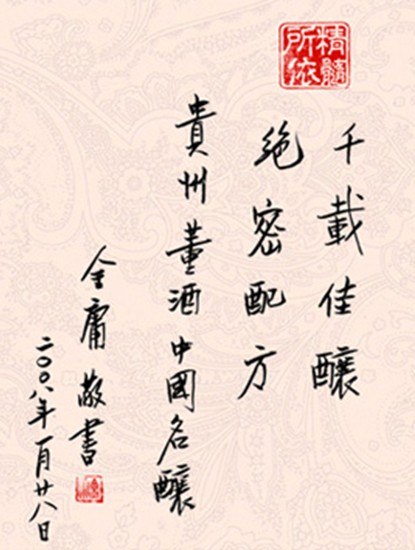 千載佳釀
絶密配方
貴州董酒中國名釀
金庸敬書
二〇〇八年一月廿八日
精髓所依